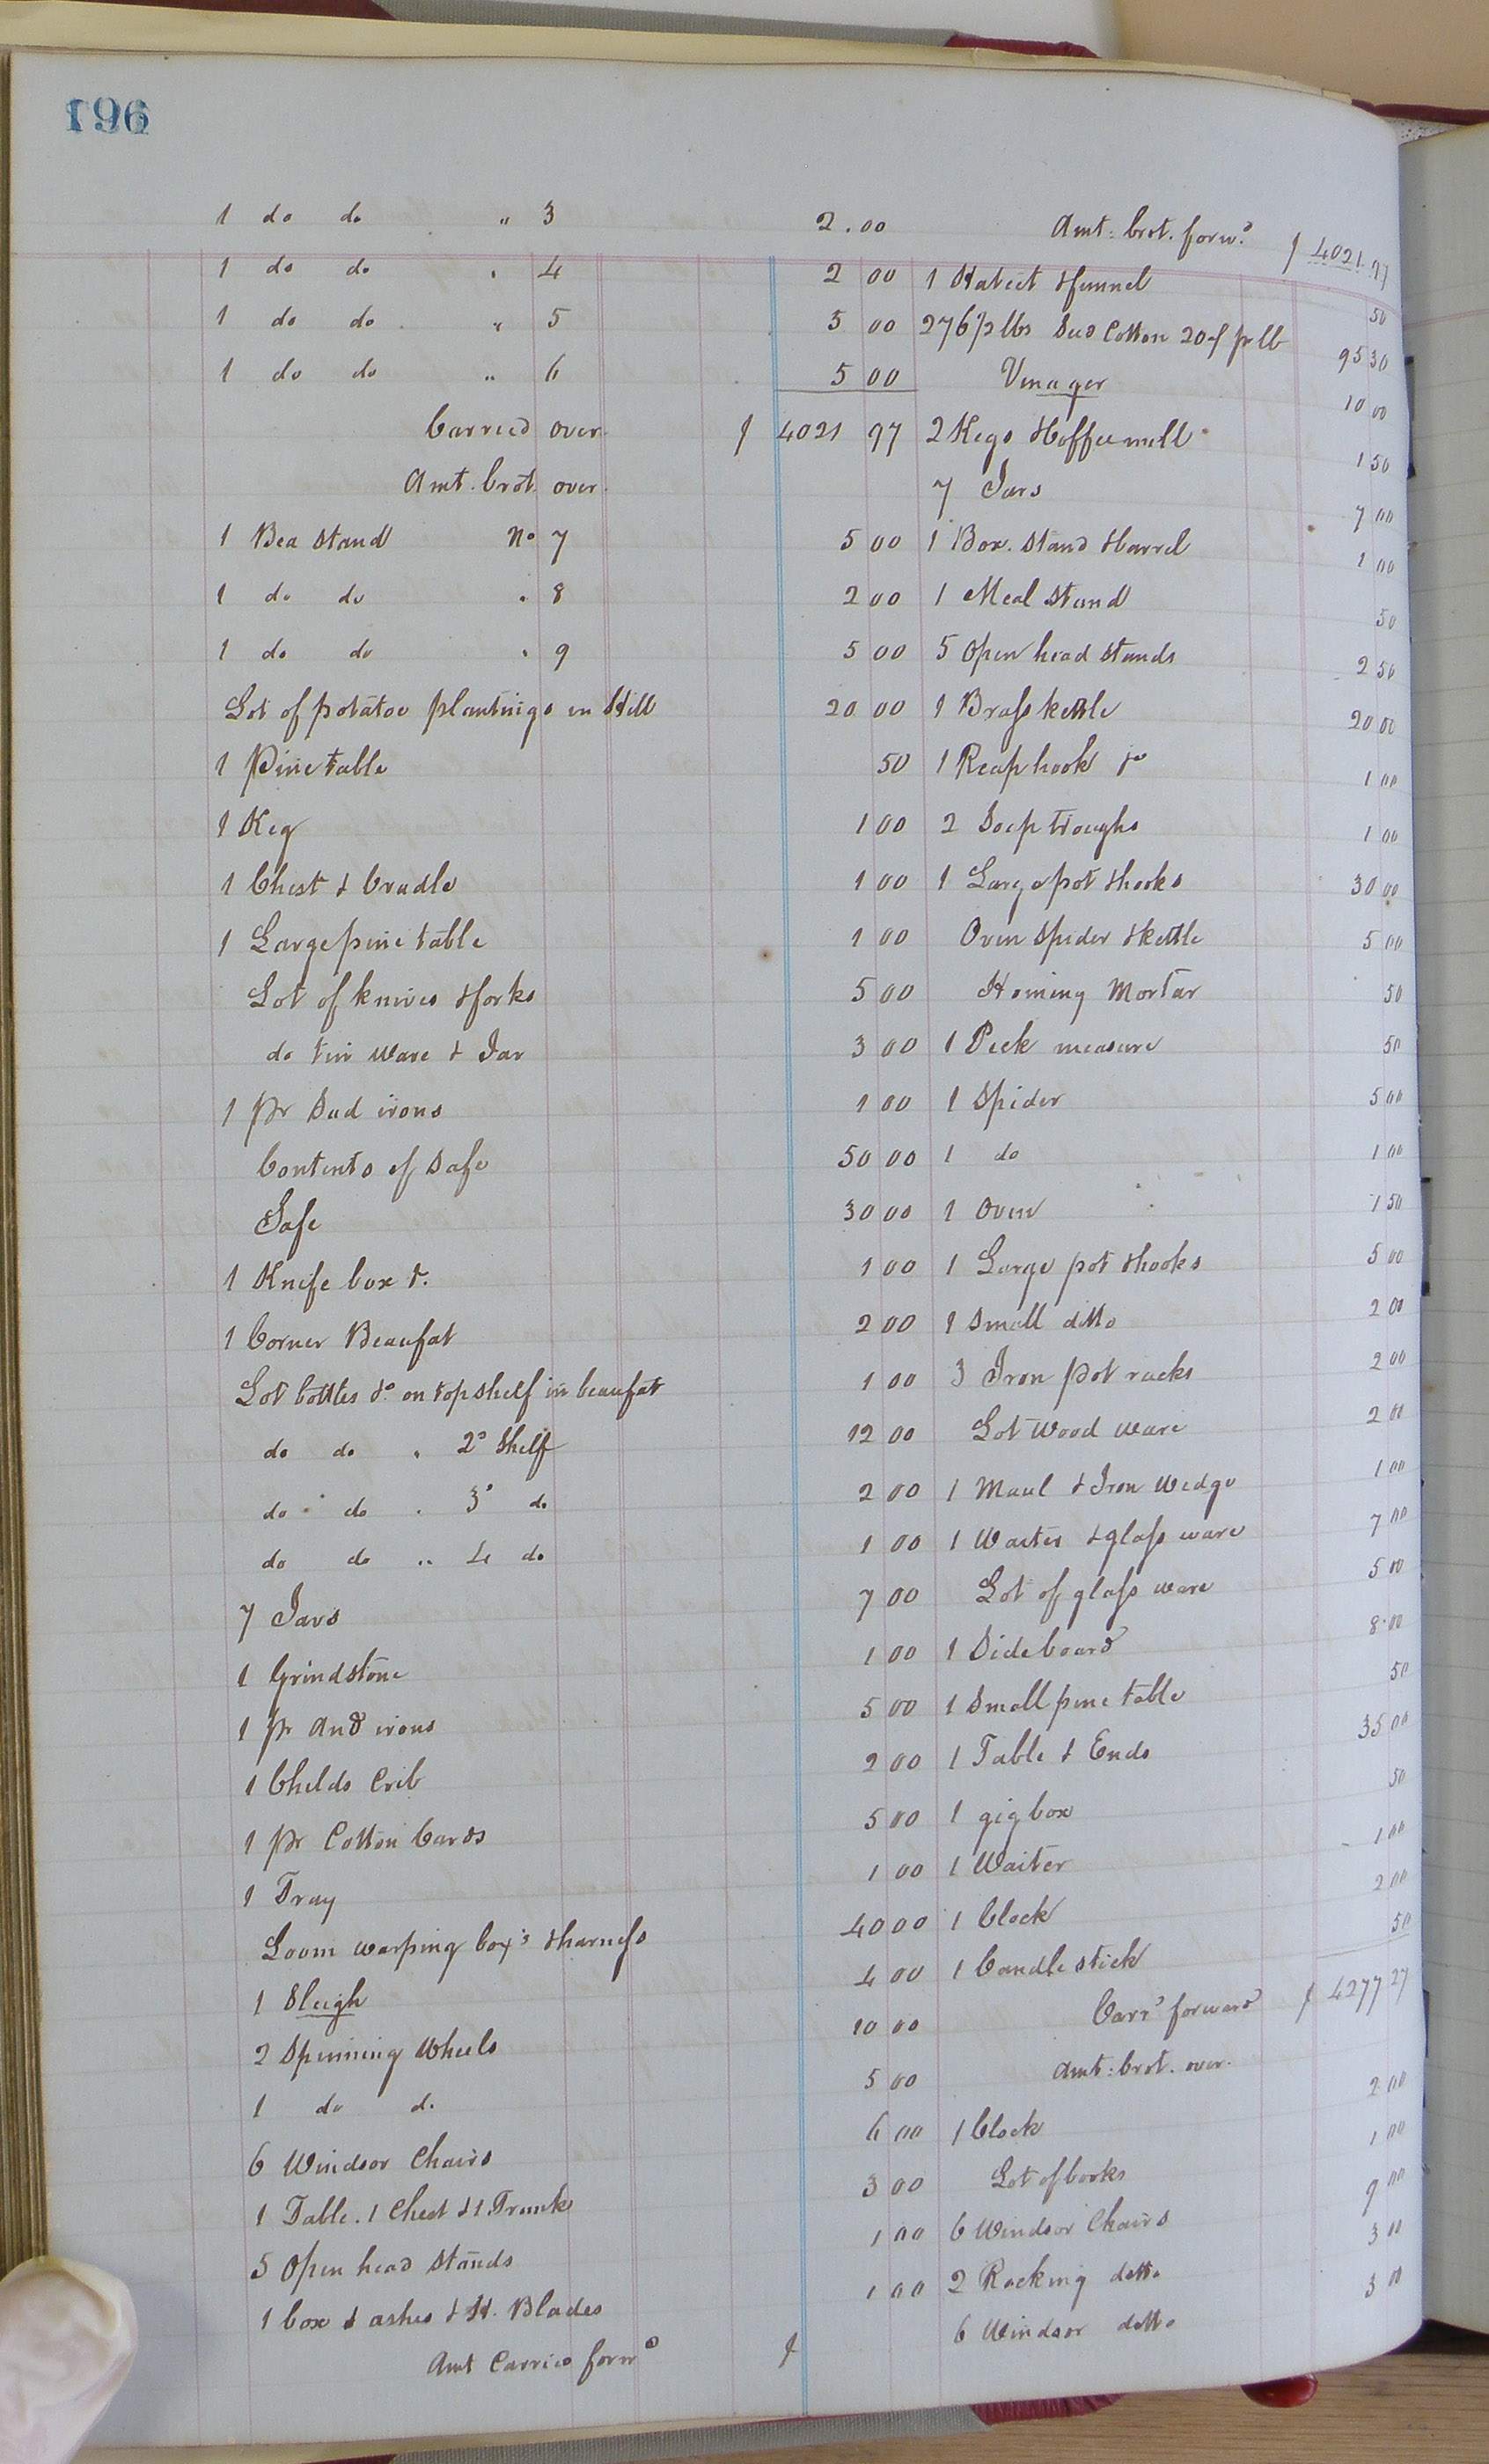 196
1 do do " 3 2.00
1 do do " 4 2 00
1 do do " 5 5 00
1 do do " 6 5 00
Carried over $ 4021 97
Amt. brot. over
1 Bea Stand No 7 5 00
1 do do " 8 2 00
1 do do " 9 5 00
Lot of potatoe plantings in Hill 20 00
1 Pine table 50
1 Keg 1 00
1 Chest & Cradle 1 00
1 Large pine table 1 00
Lot of knives & forks 5 00
do tin ware & Jar 3 00
1 pr Sad irons 1 00
Contents of Safe 50 00
Safe 30 00
1 Knife box &. 1 00
1 Corner Beaufat 2 00
Lot bottles &c on top shelf in beaufat 1 00
do do " 2d Shelf 12 00
do do " 3d do 2 00
do do " 4 do 1 00
7 Jars 7 00
1 Grindstone 1 00
1 pr And irons 5 00
1 Childs Crib 2 00
1 pr Cotton Cards 5 00
1 Tray 1 00
Loom warping box's & harness 40 00
1 Sleigh 4 00
2 Spinning Wheels 10 00
1 do do 5 00
6 Windsor Chairs 6 00
1 Table. 1 Chest & 1 Trunk 3 00
5 Open head Stands 1 00
1 box & ashes & St. Blades 1 00
Amt Carried forwd $
Amt: brot. forwd $ 4021.97
1 & funnel 50
276 1/2 lbs Seed Cotton 20 pr lb 95 30
Vinager 10 00
2 Kegs & Coffee mill 1 50
7 Jars 7 00
1 Box. Stand & barrel 1 00
1 Meal Stand 50
5 Open head Stands 2 50
1 Brass kettle 20 00
1 Reap hook &c 1 00
2 Soap troughs 1 00
1 Large pot & hooks 30 00
Oven Spider & kettle 5 00
Hominy Mortar 50
1 Peck measure 50
1 Spider 5 00
1 do 1 00
1 Oven 1 50
1 Large pot & hooks 5 00
1 Small ditto 2 00
3 Iron pot racks 2 00
Lot Wood ware 2 00
1 Maul & Iron Wedge 1 00
1 Waiter & glass ware 7 00
Lot of glass ware 5 00
1 Sideboard 8.00
1 Small pine table 50
1 Table & Ends 35 00
1 gig box 50
1 Waiter 1 00
1 Clock 2 00
1 Candle stick 50
Carrd forward $ 4277 27
Amt: brot. over.
1 Clock 2 00
Lot of books 1 00
6 Windsor Chairs 9 00
2 Rocking ditto 3 00
6 Windsor ditto 3 00